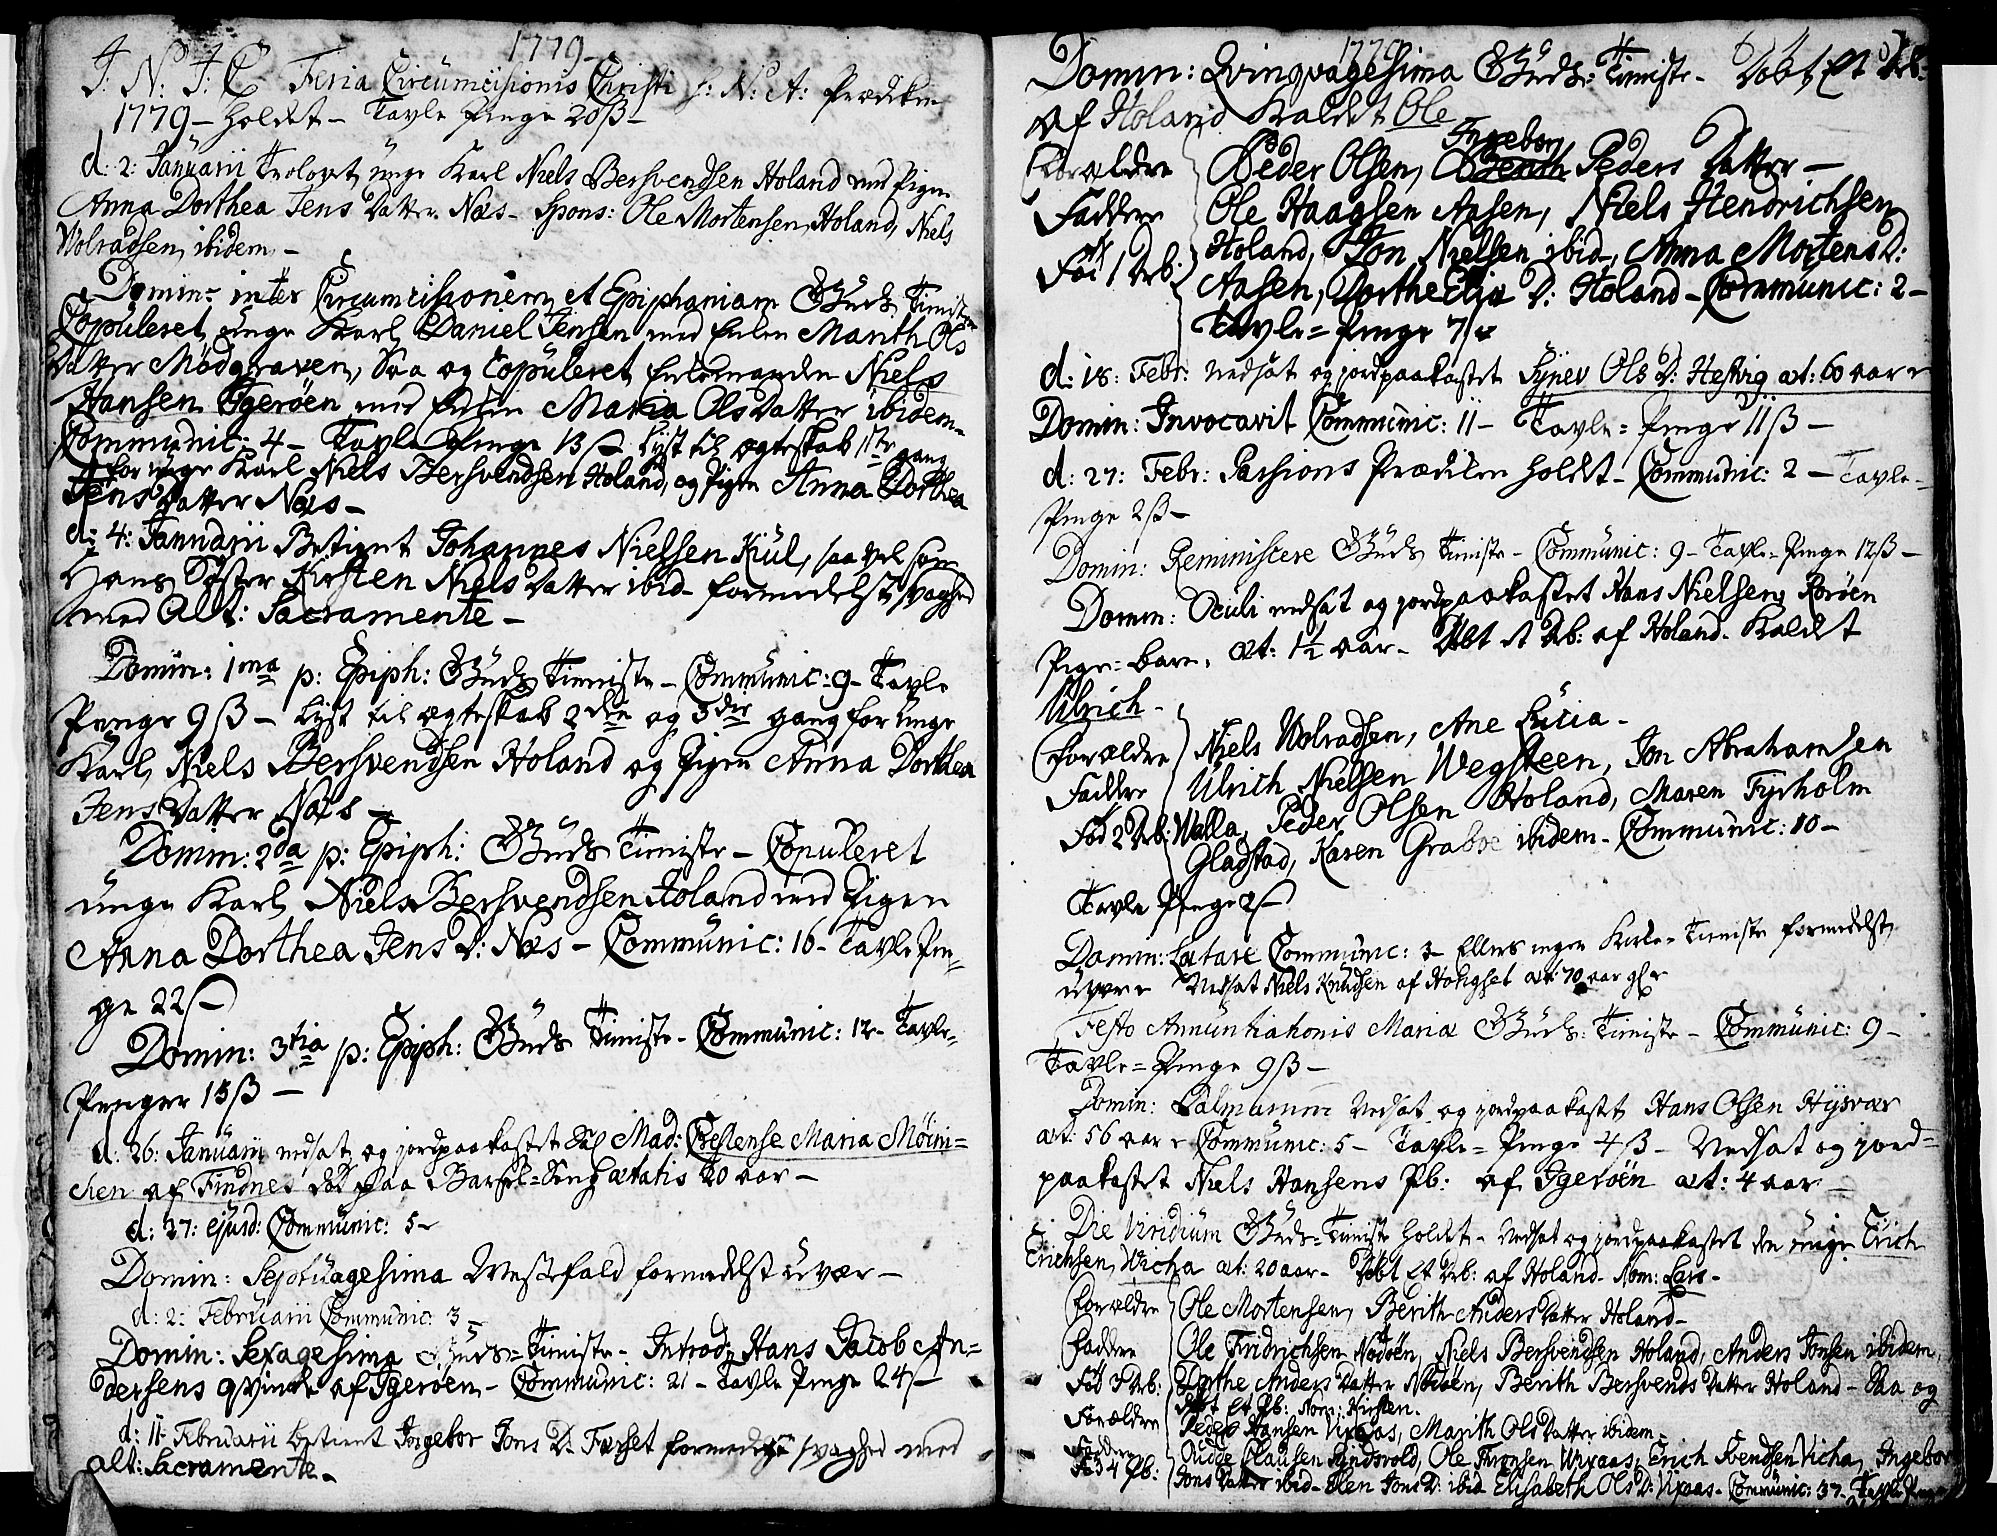 1779
J: N: J: C Feria Circumcisionis Christi h: N: A: Prædiken
1779 – holdt – Tavle Penge 20ß –
d: 2: Januarii Trolovet unge Karl Niels Bersvendsen Holand med Pigen
Anna Dorthea Jens Datter Næs – Spons: Ole Mortensen Holand, Niels
Wolradsen, ibidem –
Domin: inter Circumcisionem et Epiphaniam GUds Tieniste
Copuleret unge Karl Daniel Jensen med Enken Marith Ols
Datter Mødgraven, Saa og Copuleret Enkemanden Niels
Hansen Igerøen med Enken Maria Ols Datter ibidem –
Communic: 4 – Tavle Penge 13ß Lyst til ægteskab 1ste gang
for unge Karl Niels Bersvendsen Holand, og Pigen Anna Dorthea
Jens Datter Næs –
d: 4: Januarii Betient Johannes Nielsen Kiul, saa vel som
Hans Søster Kirsten Niels Datter ibid – formedelst svaghed
med Alt: Sacramente –
Domin: 1ma p: Epiph: GUds Tieniste – Communic: 9 – Tavle
Penge 9ß – Lyst til ægteskab 2den og 3die gang for unge
Karl Niels Bersvendsen Holand og Pigen Anna Dorthea
Jens Datter Næs –
Domin: 2da p: Epiph: GUds Tieniste – Copuleret
unge Karl Niels Bersvendsen Holand med Pigen
Anna Dorthea Jens D: Næs – Communic: 16 – Tavle Pen=
ge 22ß
Domin: 3tia p: Epiph: GUds Tieniste – Communic: 12 – Tavle=
Penger 15ß –
d: 26: Januarii nedsat og jordpaakastet Sal Mad: Chrestense Maria Møini=
chen af Tindnes død paa Barsel=Seng ætatis 20 aar –
d: 27: ejusd: Communic: 5 –
Domin: Septuagesima Messefald formedelst uvær –
d: 2: Februarii Communic: 3 –
Domin: Sexagesima GUds=Tieniste – Introd: Hans Jacob An=
dersens qvinde af Igerøen – Communic: 21 – Tavle Penge 24ß
d: 11 Februarii betient Ingebor Jons D: Forset formedelst svaghed med
alt: Sacramente –
1779
Domin: Qvinqvagesima GUds=Tieniste – Døbt Et Drb:
af Holand Kaldet Ole
Forældre Peder Olsen, Ingebor Peders Datter –
Faddere Ole Haagsen Aasen, Niels Hendrichsen
Fød 1 Drb: Holand, Jon Nielsen ibid –, Anna Mortens D:
Aasen, Dorthe Elia D: Holand – Communic: 2 –
Tavle=Penge 7ß
d: 18: Febr: Nedsat og jordpaakastet Synev Ols D: Hestvig æt: 60 aar
Domin: Invocavit Communic: 11 – Tavle=Penge 11ß –
d: 27: Febr: Passions Prædiken holdt – Communic: 2 – Tavle=
Penge 2ß –
Domin: Reminiscere GUds Tieniste – Communic: 9 – Tavle=Penge 12ß –
Domin: Oculi nedsat og jordpaakastet Hans Nielsens Rørøen
Pige=barn, æt: 1½ aar – Døbt 1 Drb: af Holand – Kaldet
Ulrich –
Forældre Niels Wolradsen, Ane Lucia –
Faddere Ulrich Nielsen Wegsteen, Jon Abrahamsen
Fød 2 Drb: Walla, Peder Olsen Holand, Maren Fyrholm
Gladstad, Karen Grabov ibidem – Communic: 10 –
Tavle Penge 2ß
Domin: Lætare Communic: 3 – Ellers ingen Kirke=Tieniste formedelst
uvær Nedsat Niels Knudsen af æt: 70 aar
Festo Annuntiationis Mariæ GUds: Tieniste – Communic: 9 –
Tavle=Penge 9ß –
Domin: Palmarum Nedsat og jordpaakastet Hans Olsen Hysvær
æt: 56 aar Communic: 5 – Tavle=Penge 4ß – Nedsat og jord=
paakastet Niels Hansens Pb: af Igerøen æt: 4 aar –
Die Viridium GUds=Tieniste holdet – Nedsat og jordpaakastet den unge Erich
Erichsen, Vicha æt: 20 aar – Døbt Et Drb: af Holand – Nom: Lars –
Forældre Ole Mortensen, Berith Anders Datter Holand –
Faddere Ole Fridrichsen Nødøen, Niels Bersvendsen Holand, Anders Jonsen ibidem,
Fød 3 Drb: Dorthe Anders Datter Nødøen, Benth Bersvends Datter Holand – Saa og
Døbt Et Pb: Nom: Kirsten –
Forældre Peder Hansen Vixaas, Marith Ols Datter ibidem –
Faddere Clausen Rindsvold, Ole Thronsen Vixaas, Erich Svendsen Vicha, Ingebor
Fød 4 Pb: Jons Datter ibid – Elen Jons D: ibid Elisabeth Ols D: Vixaas – Communic: 37 – Tavle Penge